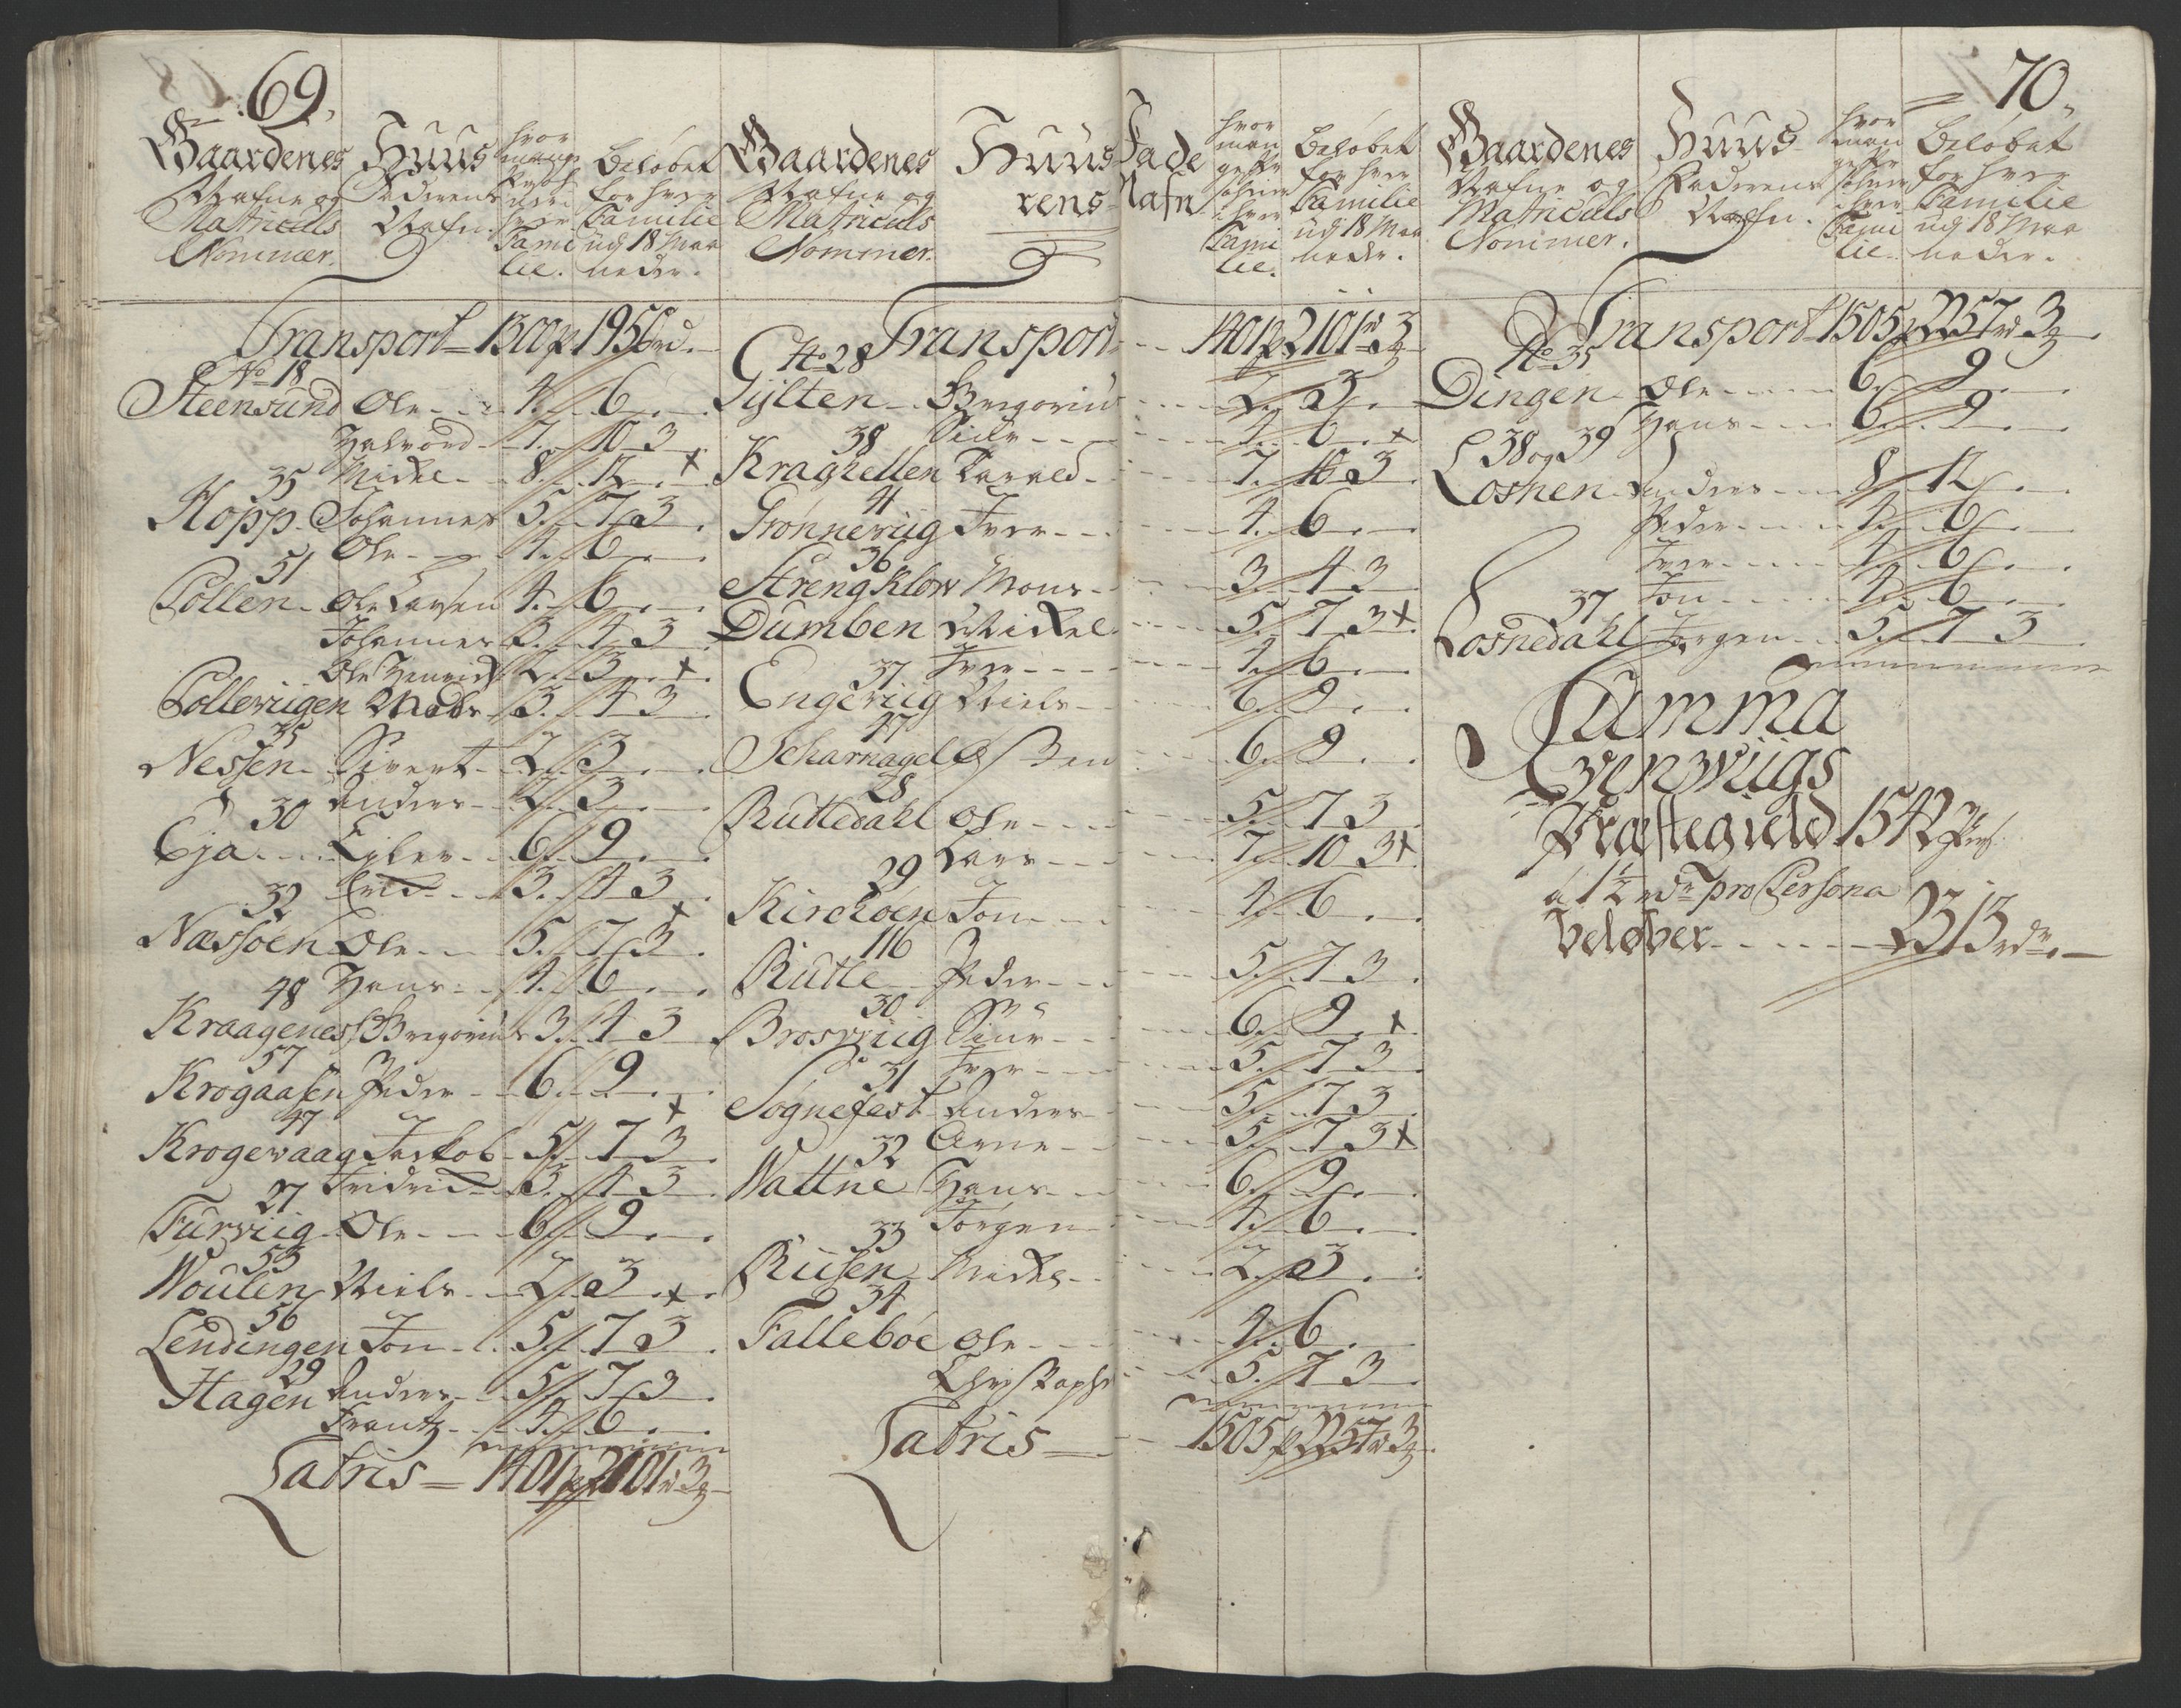 69.
Gaardenes Nafne og Matriculs Nommer.
Huus Faderens Nafn.
hvor mange Persohner i hver Familie.
Beløbet for hver Familie udj 18 Maaneder.
Transport = 1300 p 1950 rd.
No 18
Steensund Ole 4. 6.
Halvord 7. 10 3
Mickel 8. 12. x
35
Hopp Johannes 5. 7 3.
Ole 4. 6.
51
Pollen Ole Larsen 4. 6.
Johannes 3. 4 3
Ole Henrich 2. 3. x
Pollewiigen Mads 3. 4 3
35
Nessen Sivert 2. 3.
Anders 2. 3.
30
Eja Eyler 6. 9.
Erich 3. 4 3
32
Næssøen Ole 5. 7 3. x
Hans 4. 6.
48
Kraagenes Gregorius 3. 4 3
57
Krogaasen Peder 6. 9.
47
Krogewaag Jackob 5. 7 3 x
Fridrich 3. 4 3
27
Furviig Ole 6. 9.
53
Woulen Niels 2. 3.
56
Lendingen Jon 5. 7 3 x
29
Hagen Anders 5. 7 3
Frantz 4. 6.
Latris = 1401 p 2101 rd 3
Gaardenes Nafne og Matriculs Nommer.
Huusfaderens Nafn
hvor mange Persohner i hver Familie.
Beløbet for hver Familie udj 18 Maaneder.
Transport 1401 p 2101 rd 3
No 28
Gylten Gregorius 2. 3.
Siver 4. 6. x
38
Kraghellen Harald 7. 10 3
41
Grønneviig Iver 4. 6.
36
Strengklow Mons 3 4 3
Dumben Mickel 5. 7 3 x
Iver 4. 6.
37
Engeviig Niels 6. 9.
47
Scharnagel Esben 6. 9.
28
Rutledahl Ole 5. 7 3
Lars 7. 10 3 x
29
Kirchøen Jon 4. 6.
116
Rutle Peder 5. 7 3
30
Brosviig Siur 6. 9. x
Iver 5. 7 3
31
Sognefest Anders 5. 7 3
Arne 5. 7 3 x
32
Wattne Hans 6. 9.
Jørgen 4. 6.
33
Riisen Mickel 2. 3.
34
Fallebøe Ole 4. 6.
Christopher 5. 7 3
Latris = 1505 p 2257 rd 3
70.
Gaardenes Nafne og Matriculs Nommer.
Huus Faderens Nafn.
hvor mange Persohner i hver Familie.
Beløbet for hver Familie udj 18 Maaneder.
Transport 1505 p 2257 rd 3
No 35
Dingen Ole 6. 9.
Hans 6. 9.
38 og 39
Losnen Anders 8 12.
Peder 4. 6.
Iver 4. 6.
Jon 4. 6.
37
Losnedahl Jørgen 5. 7 3
Summa
Evenwiigs
Præstegield 1542 Pers.
a 1½ rdr pro Persona
beløber 2313 rdr.